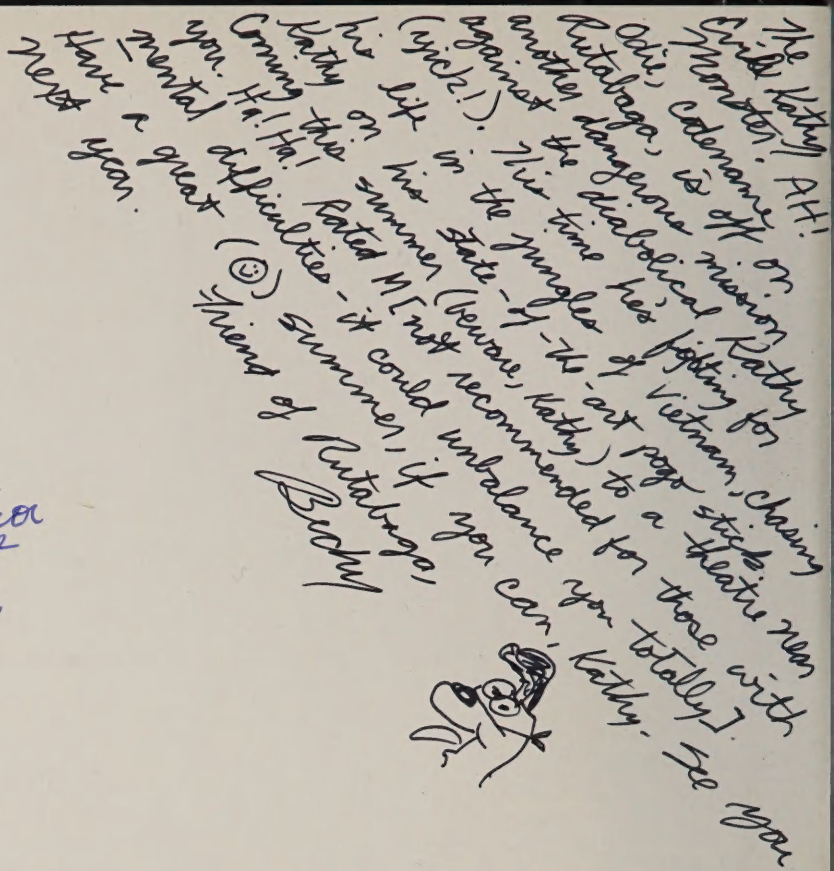 The
Evil Kathy
Monster! AH!
Odie, codename
Rutabaga, is off on
another dangerous mission
against the diabolical Kathy
(yick!). This time he's fighting for
his life in the jungles of Vietnam, chasing
Kathy on his state-of-the-art pogo stick.
Coming this summer (beware, Kathy) to a theatre near
you. Ha! Ha! Rated M [not recommended for those with
mental difficulties - it could unbalance you totally].
Have a great (☺) summer, if you can, Kathy. See you
next year.
Friend of Rutabaga,